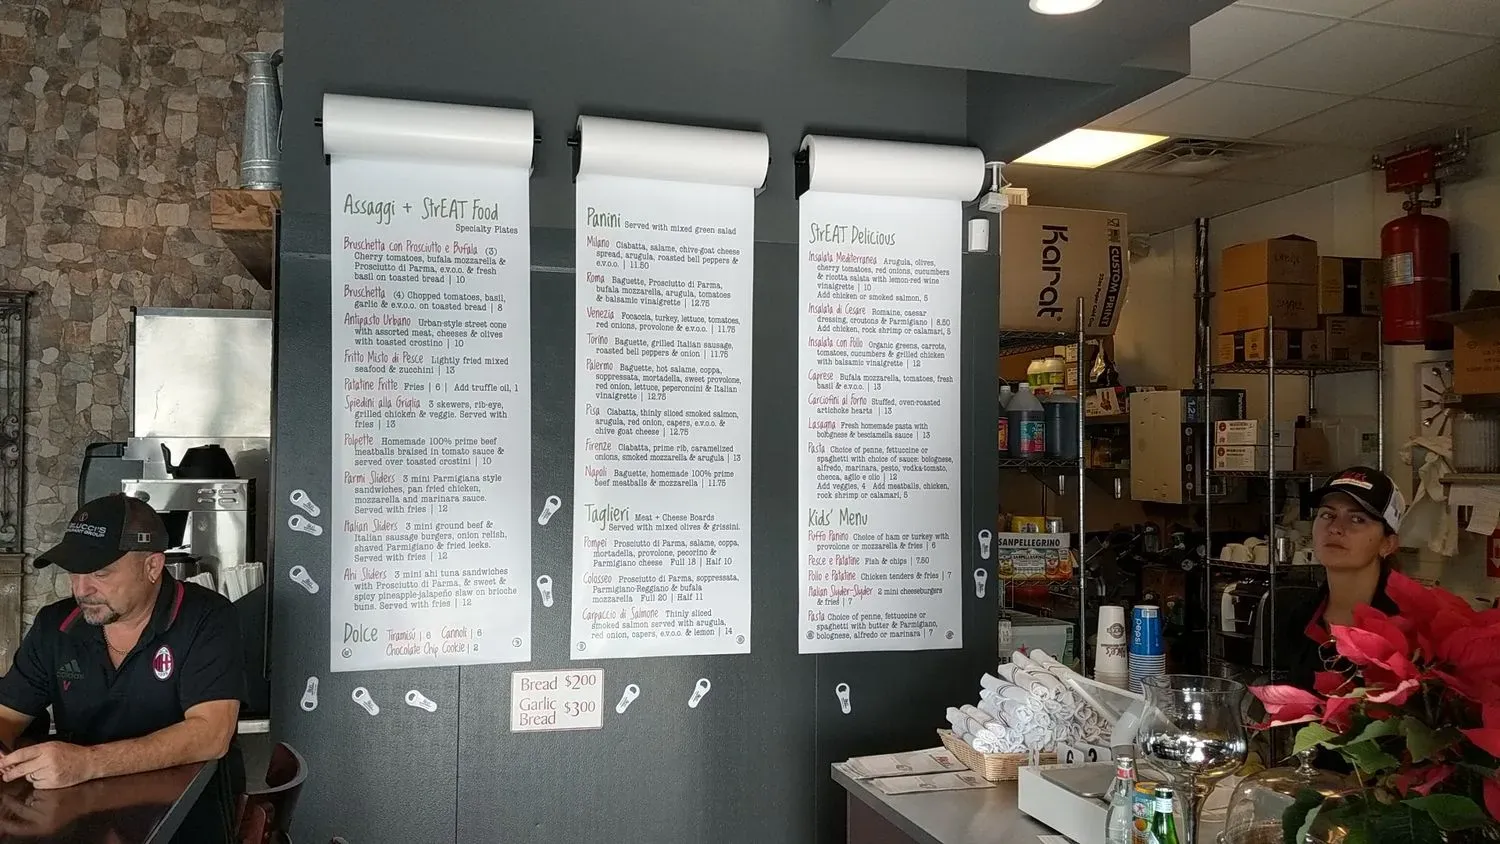 Assaggi + StrEAT Food
Specialty Plates
Bruschetta con Prosciutto e Bufala (3)
Cherry tomatoes, bufala mozzarella &
Prosciutto di Parma, e.v.o.o. & fresh
basil on toasted bread | 10
Bruschetta (4) Chopped tomatoes, basil,
garlic & e.v.o.o. on toasted bread | 8
Antipasto Urbano Urban-style street cone
with assorted meat, cheeses & olives
with toasted crostino | 10
Fritto Misto di Pesce Lightly fried mixed
seafood & zucchini | 13
Patatine Fritte Fries | 6 | Add truffle oil, 1
Spiedini alla Griglia 3 skewers, rib-eye,
grilled chicken & veggie. Served with
fries | 13
Polpette Homemade 100% prime beef
meatballs braised in tomato sauce &
served over toasted crostini | 10
Parmi Sliders 3 mini Parmigiana style
sandwiches, pan fried chicken,
mozzarella and marinara sauce.
Served with fries | 12
Italian Sliders 3 mini ground beef &
Italian sausage burgers, onion relish,
shaved Parmigiano & fried leeks.
Served with fries | 12
Ahi Sliders 3 mini ahi tuna sandwiches
with Prosciutto di Parma, & sweet &
spicy pineapple-jalapeño slaw on brioche
buns. Served with fries | 12
Dolce Tiramisú | 6 Cannoli | 6
Chocolate Chip Cookie | 2
Panini Served with mixed green salad
Milano Ciabatta, salame, chive-goat cheese
spread, arugula, roasted bell peppers &
e.v.o.o. | 11.50
Roma Baguette, Prosciutto di Parma,
bufala mozzarella, arugula, tomatoes
& balsamic vinaigrette | 12.75
Venezia Focaccia, turkey, lettuce, tomatoes,
red onions, provolone & e.v.o.o. | 11.75
Torino Baguette, grilled Italian sausage,
roasted bell peppers & onion | 11.75
Palermo Baguette, hot salame, coppa,
soppressata, mortadella, sweet provolone,
red onion, lettuce, peperoncini & Italian
vinaigrette | 12.75
Pisa Ciabatta, thinly sliced smoked salmon,
arugula, red onion, capers, e.v.o.o. &
chive goat cheese | 12.75
Firenze Ciabatta, prime rib, caramelized
onions, smoked mozzarella & arugula | 13
Napoli Baguette, homemade 100% prime
beef meatballs & mozzarella | 11.75
Taglieri Meat + Cheese Boards
Served with mixed olives & grissini.
Pompei Prosciutto di Parma, salame, coppa,
mortadella, provolone, pecorino &
Parmigiano cheese Full 18 | Half 10
Colosseo Prosciutto di Parma, soppressata,
Parmigiano-Reggiano & bufala
mozzarella Full 20 | Half 11
Carpaccio di Salmone Thinly sliced
smoked salmon served with arugula,
red onion, capers, e.v.o.o. & lemon | 14
StrEAT Delicious
Insalata Mediterranea Arugula, olives,
cherry tomatoes, red onions, cucumbers
& ricotta salata with lemon-red wine
vinaigrette | 10
Add chicken or smoked salmon, 5
Insalata di Cesare Romaine, caesar
dressing, croutons & Parmigiano | 8.50
Add chicken, rock shrimp or calamari, 5
Insalata con Pollo Organic greens, carrots,
tomatoes, cucumbers & grilled chicken
with balsamic vinaigrette | 12
Caprese Bufala mozzarella, tomatoes, fresh
basil & e.v.o.o. | 13
Carciofini al forno Stuffed, oven-roasted
artichoke hearts | 13
Lasagna Fresh homemade pasta with
bolognese & besciamella sauce | 13
Pasta Choice of penne, fettuccine or
spaghetti with choice of sauce: bolognese,
alfredo, marinara, pesto, vodka-tomato,
checca, aglio e olio | 12
Add veggies, 4 Add meatballs, chicken,
rock shrimp or calamari, 5
Kids' Menu
Puffo Panino Choice of ham or turkey with
provolone or mozzarella & fries | 6
Pesce e Patatine Fish & chips | 7.50
Pollo e Patatine Chicken tenders & fries | 7
Italian Slyder-Slyder 2 mini cheeseburgers
& fried | 7
Pasta Choice of penne, fettuccine or
spaghetti with butter & Parmigiano,
bolognese, alfredo or marinara | 7
Bread $2.00
Garlic
Bread $3.00
Karat
CUSTOM PRINT
SANPELLEGRINO
pepsi
adidas